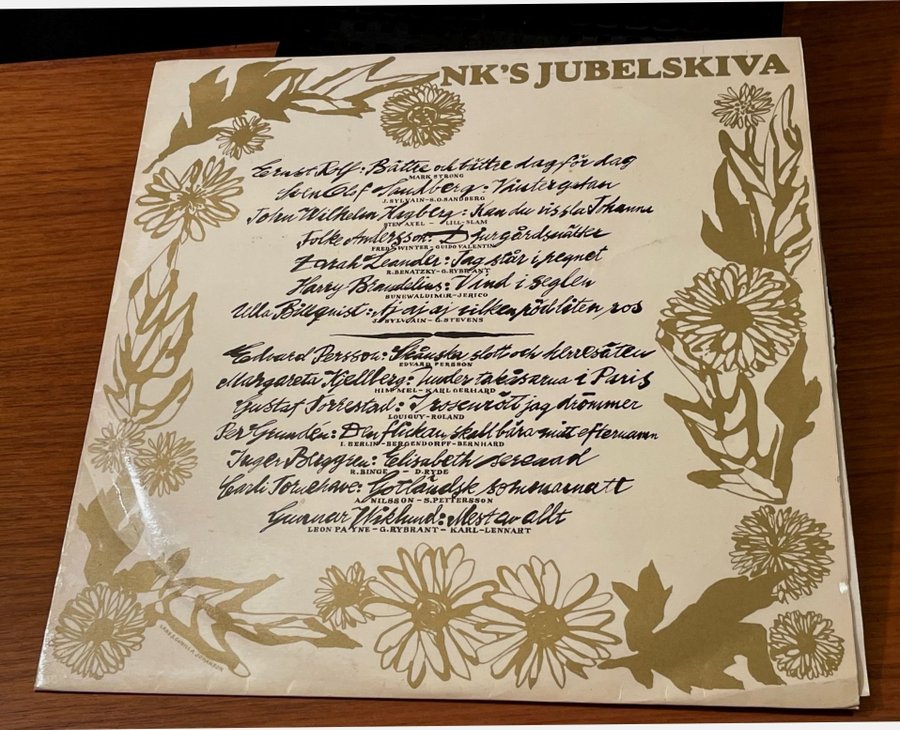 NK'S JUBELSKIVA
Ernst Rolf: Bättre och bättre dag för dag
MARK STRONG
Sven Olof Sandberg: Vintergatan
J. SYLVAIN-S.O. SANDBERG
John Wilhelm Hagberg: Kan du vissla Johanna
STEN AXEL - LILL-SLAM
Folke Andersson: Djurgårdsnätter
FRED WINTER-GUIDO VALENTIN
Zarah Leander: Jag står i regnet
R. BENATZKY-G. RYBRANT
Harry Brandelius: Vind i seglen
SUNE WALDIMIR-JERICO
Ulla Billquist: Aj aj aj vilken röd liten ros
J. SYLVAIN - G. STEVENS
Edvard Persson: Skånska slott och herresäten
EDVARD PERSSON
Margareta Kjellberg: Under takåsarna i Paris
HIMMEL-KARL GERHARD
Gustaf Torrestad: I rosenrött jag drömmer
LOUIGUY-ROLAND
Per Grundén: Den flickan skall bära mitt efternamn
I. BERLIN-BERGENDORFF-BERNHARD
Inger Berggren: Elisabeth serenad
R. BINGE - D. RYDE
Carli Tornehave: Gotländsk sommarnatt
A. NILSSON-S. PETTERSSON
Gunnar Wiklund: Mest av allt
LEON PAYNE-G. RYBRANT - KARL-LENNART
GUNILLA JOHANSSON